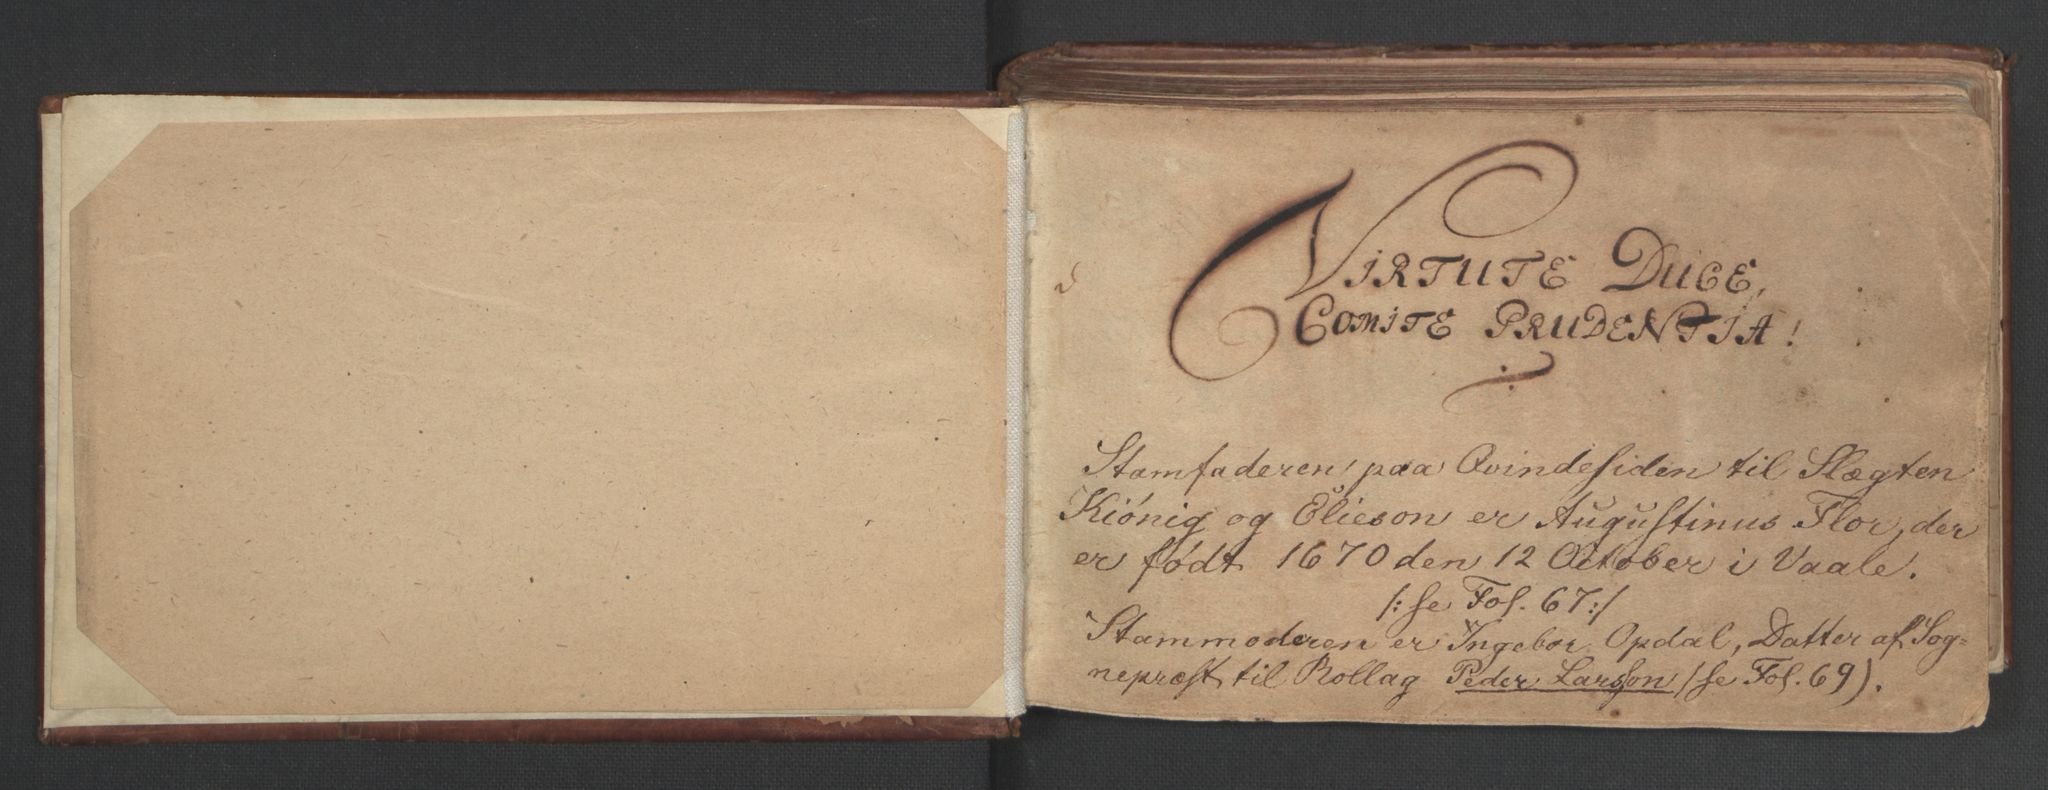 VIRTUTE DUCE,
COMITE PRUDENTIA!
Stamfaderen paa Qvindesiden til Slægten
Kiönig og Elieson er Augustinus Flor, der
er født 1670 den 12 October i Vaale.
/: se Fol. 67:/
Stammoderen er Ingebor Opdal, Datter af Sog=
nepræst til Rollag Peder Larsson /se Fol. 69).